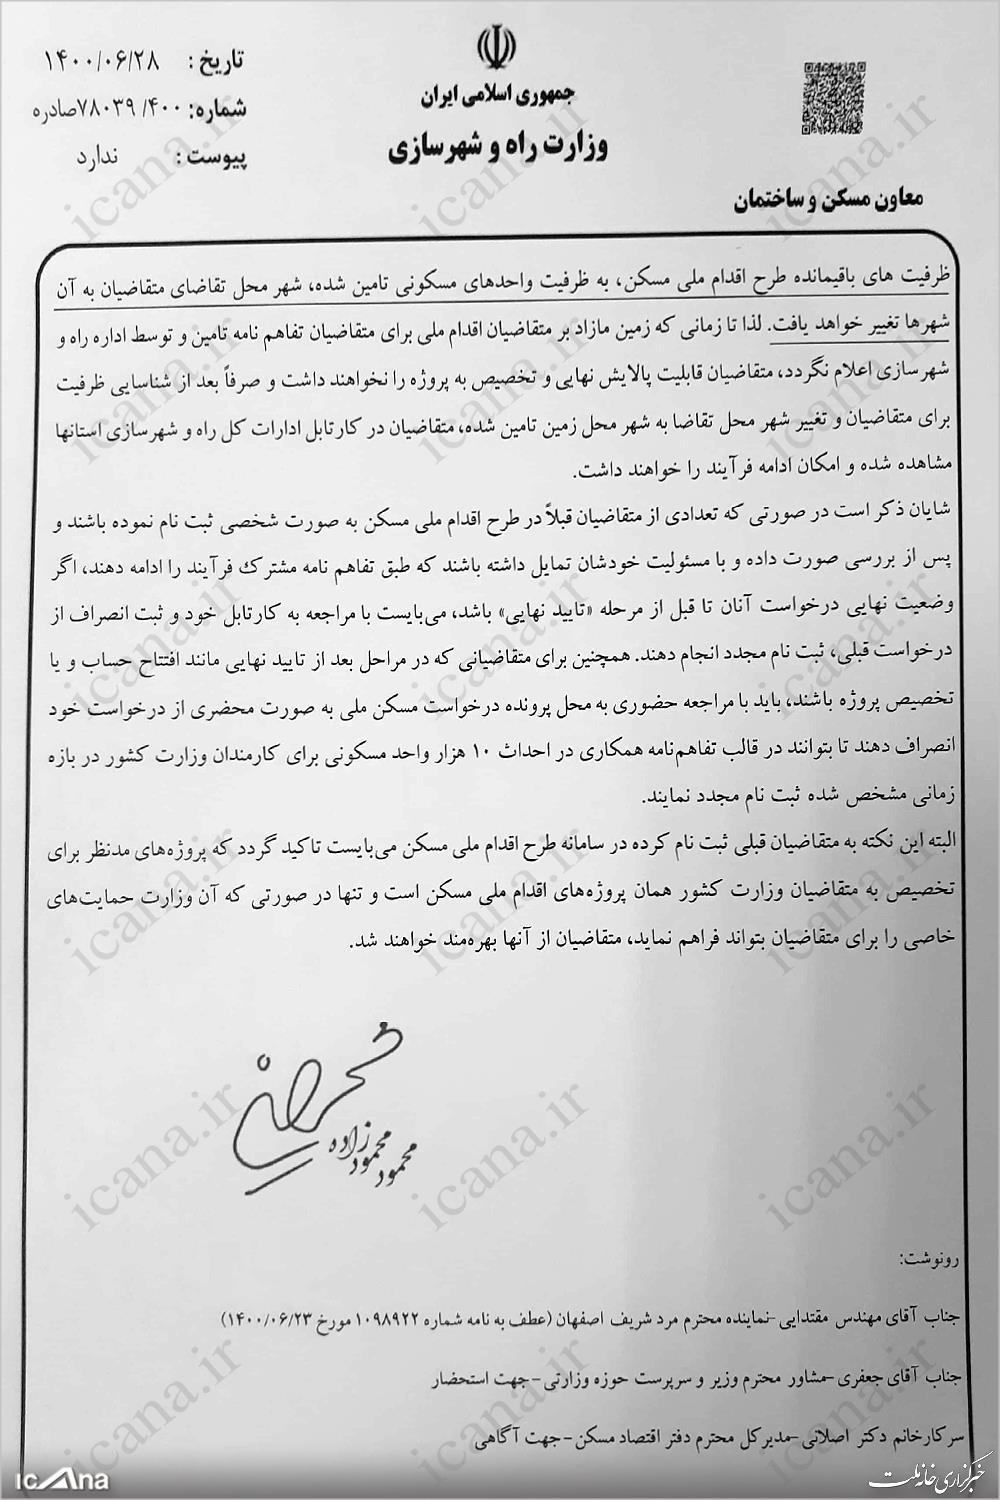 تاریخ : ۱۴۰۰/۰۶/۲۸
شماره: ۷۸۰۳۹ /۴۰۰صادره
پیوست : ندارد
جمهوری اسلامی ایران
وزارت راه و شهرسازی
معاون مسکن و ساختمان
ظرفیت های باقیمانده طرح اقدام ملی مسکن، به ظرفیت واحدهای مسکونی تامین شده، شهر محل تقاضای متقاضیان به آن
شهرها تغییر خواهد یافت. لذا تا زمانی که زمین مازاد بر متقاضیان اقدام ملی برای متقاضیان تفاهم نامه تامین و توسط اداره راه و
شهرسازی اعلام نگردد، متقاضیان قابلیت پالایش نهایی و تخصیص به پروژه را نخواهند داشت و صرفاً بعد از شناسایی ظرفیت
برای متقاضیان و تغییر شهر محل تقاضا به شهر محل زمین تامین شده، متقاضیان در کارتابل ادارات کل راه و شهرسازی استانها
مشاهده شده و امکان ادامه فرآیند را خواهند داشت.
شایان ذکر است در صورتی که تعدادی از متقاضیان قبلاً در طرح اقدام ملی مسکن به صورت شخصی ثبت نام نموده باشند و
پس از بررسی صورت داده و با مسئولیت خودشان تمایل داشته باشند که طبق تفاهم نامه مشترک فرآیند را ادامه دهند، اگر
وضعیت نهایی درخواست آنان تا قبل از مرحله «تایید نهایی» باشد، می‌بایست با مراجعه به کارتابل خود و ثبت انصراف از
درخواست قبلی، ثبت نام مجدد انجام دهند. همچنین برای متقاضیانی که در مراحل بعد از تایید نهایی مانند افتتاح حساب و یا
تخصیص پروژه باشند، باید با مراجعه حضوری به محل پرونده درخواست مسکن ملی به صورت محضری از درخواست خود
انصراف دهند تا بتوانند در قالب تفاهم‌نامه همکاری در احداث ۱۰ هزار واحد مسکونی برای کارمندان وزارت کشور در بازه
زمانی مشخص شده ثبت نام مجدد نمایند.
البته این نکته به متقاضیان قبلی ثبت نام کرده در سامانه طرح اقدام ملی مسکن می‌بایست تاکید گردد که پروژه‌های مدنظر برای
تخصیص به متقاضیان وزارت کشور همان پروژه‌های اقدام ملی مسکن است و تنها در صورتی که آن وزارت حمایت‌های
خاصی را برای متقاضیان بتواند فراهم نماید، متقاضیان از آنها بهره‌مند خواهند شد.
محمود محمودزاده
رونوشت:
جناب آقای مهندس مقتدایی -نماینده محترم مرد شریف اصفهان (عطف به نامه شماره ۱۰۹۸۹۲۲ مورخ ۱۴۰۰/۰۶/۲۳)
جناب آقای جعفری -مشاور محترم وزیر و سرپرست حوزه وزارتی - جهت استحضار
سرکارخانم دکتر اصلانی -مدیرکل محترم دفتر اقتصاد مسکن - جهت آگاهی
icana
خبرگزاری خانه ملت
icana.ir